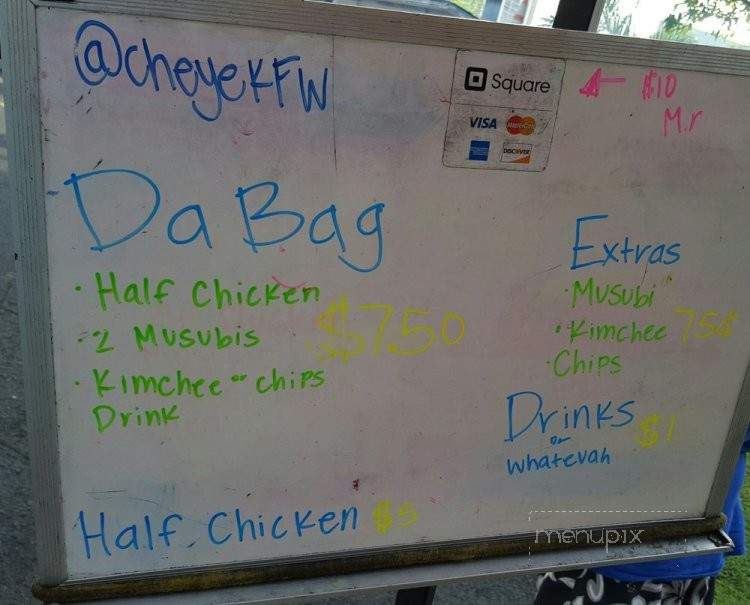 @cheyeKFW
Square
VISA MasterCard
DISCOVER
$10
Mir
Da Bag
· Half Chicken
· 2 Musubis
$750
· Kimchee or chips
Drink
Extras
· Musubi
· Kimchee 75¢
· Chips
Drinks $1
or
whatevah
Half Chicken $5
menupix